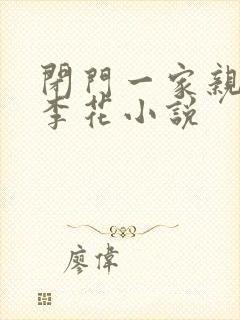 閉門一家親
李花小說
廖偉